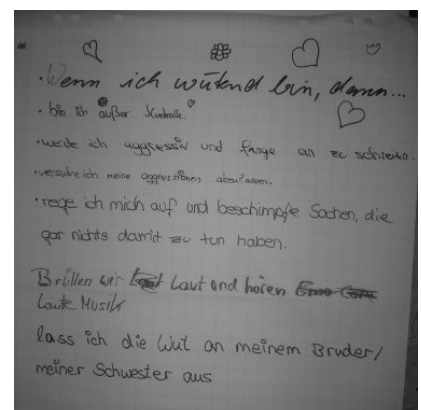 · Wenn ich wütend bin, dann...
· bin ich außer Kontrolle.
· werde ich aggressiv und fange an zu schreien.
· versuche ich meine aggressionen abzulassen.
· rege ich mich auf und beschimpfe Sachen, die
gar nichts damit zu tun haben.
Brüllen wir Laut und hören
Laute Musik
lass ich die Wut an meinem Bruder/
meiner Schwester aus